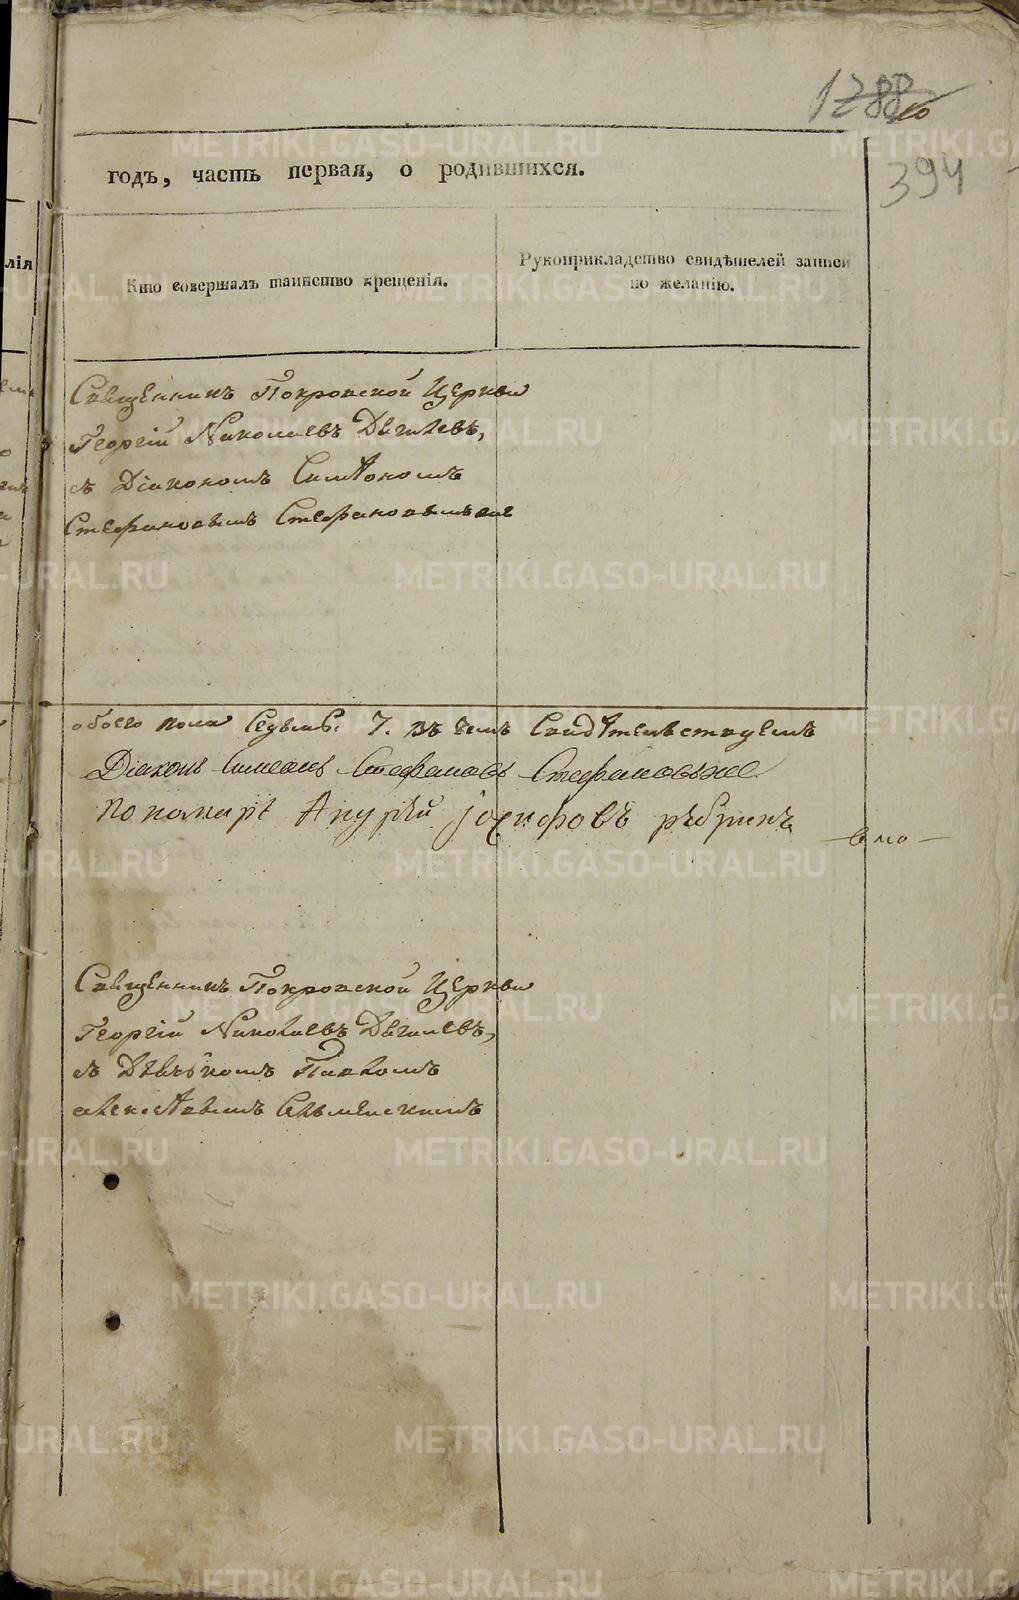 1788
394
годъ, часть первая, о родившихся.
лія
Кто совершалъ таинство крещенія.
Рукоприкладство свидѣтелей записи
по желанію.
Священникъ Покровской Церкви
Георгій Николаевъ
съ Діакономъ Симѣономъ
Стефановымъ Стефановымъ же
обоего пола Седьмь. 7. въ чемъ Свидѣтельствуемъ
Діаконъ Симеонъ Стефановъ Стефановъ же
Пономарь Іосифовъ
Священникъ Покровской Церкви
Георгій Николаевъ
съ Дьячкомъ Павломъ
Алексѣевымъ
METRIKI.GASO-URAL.RU